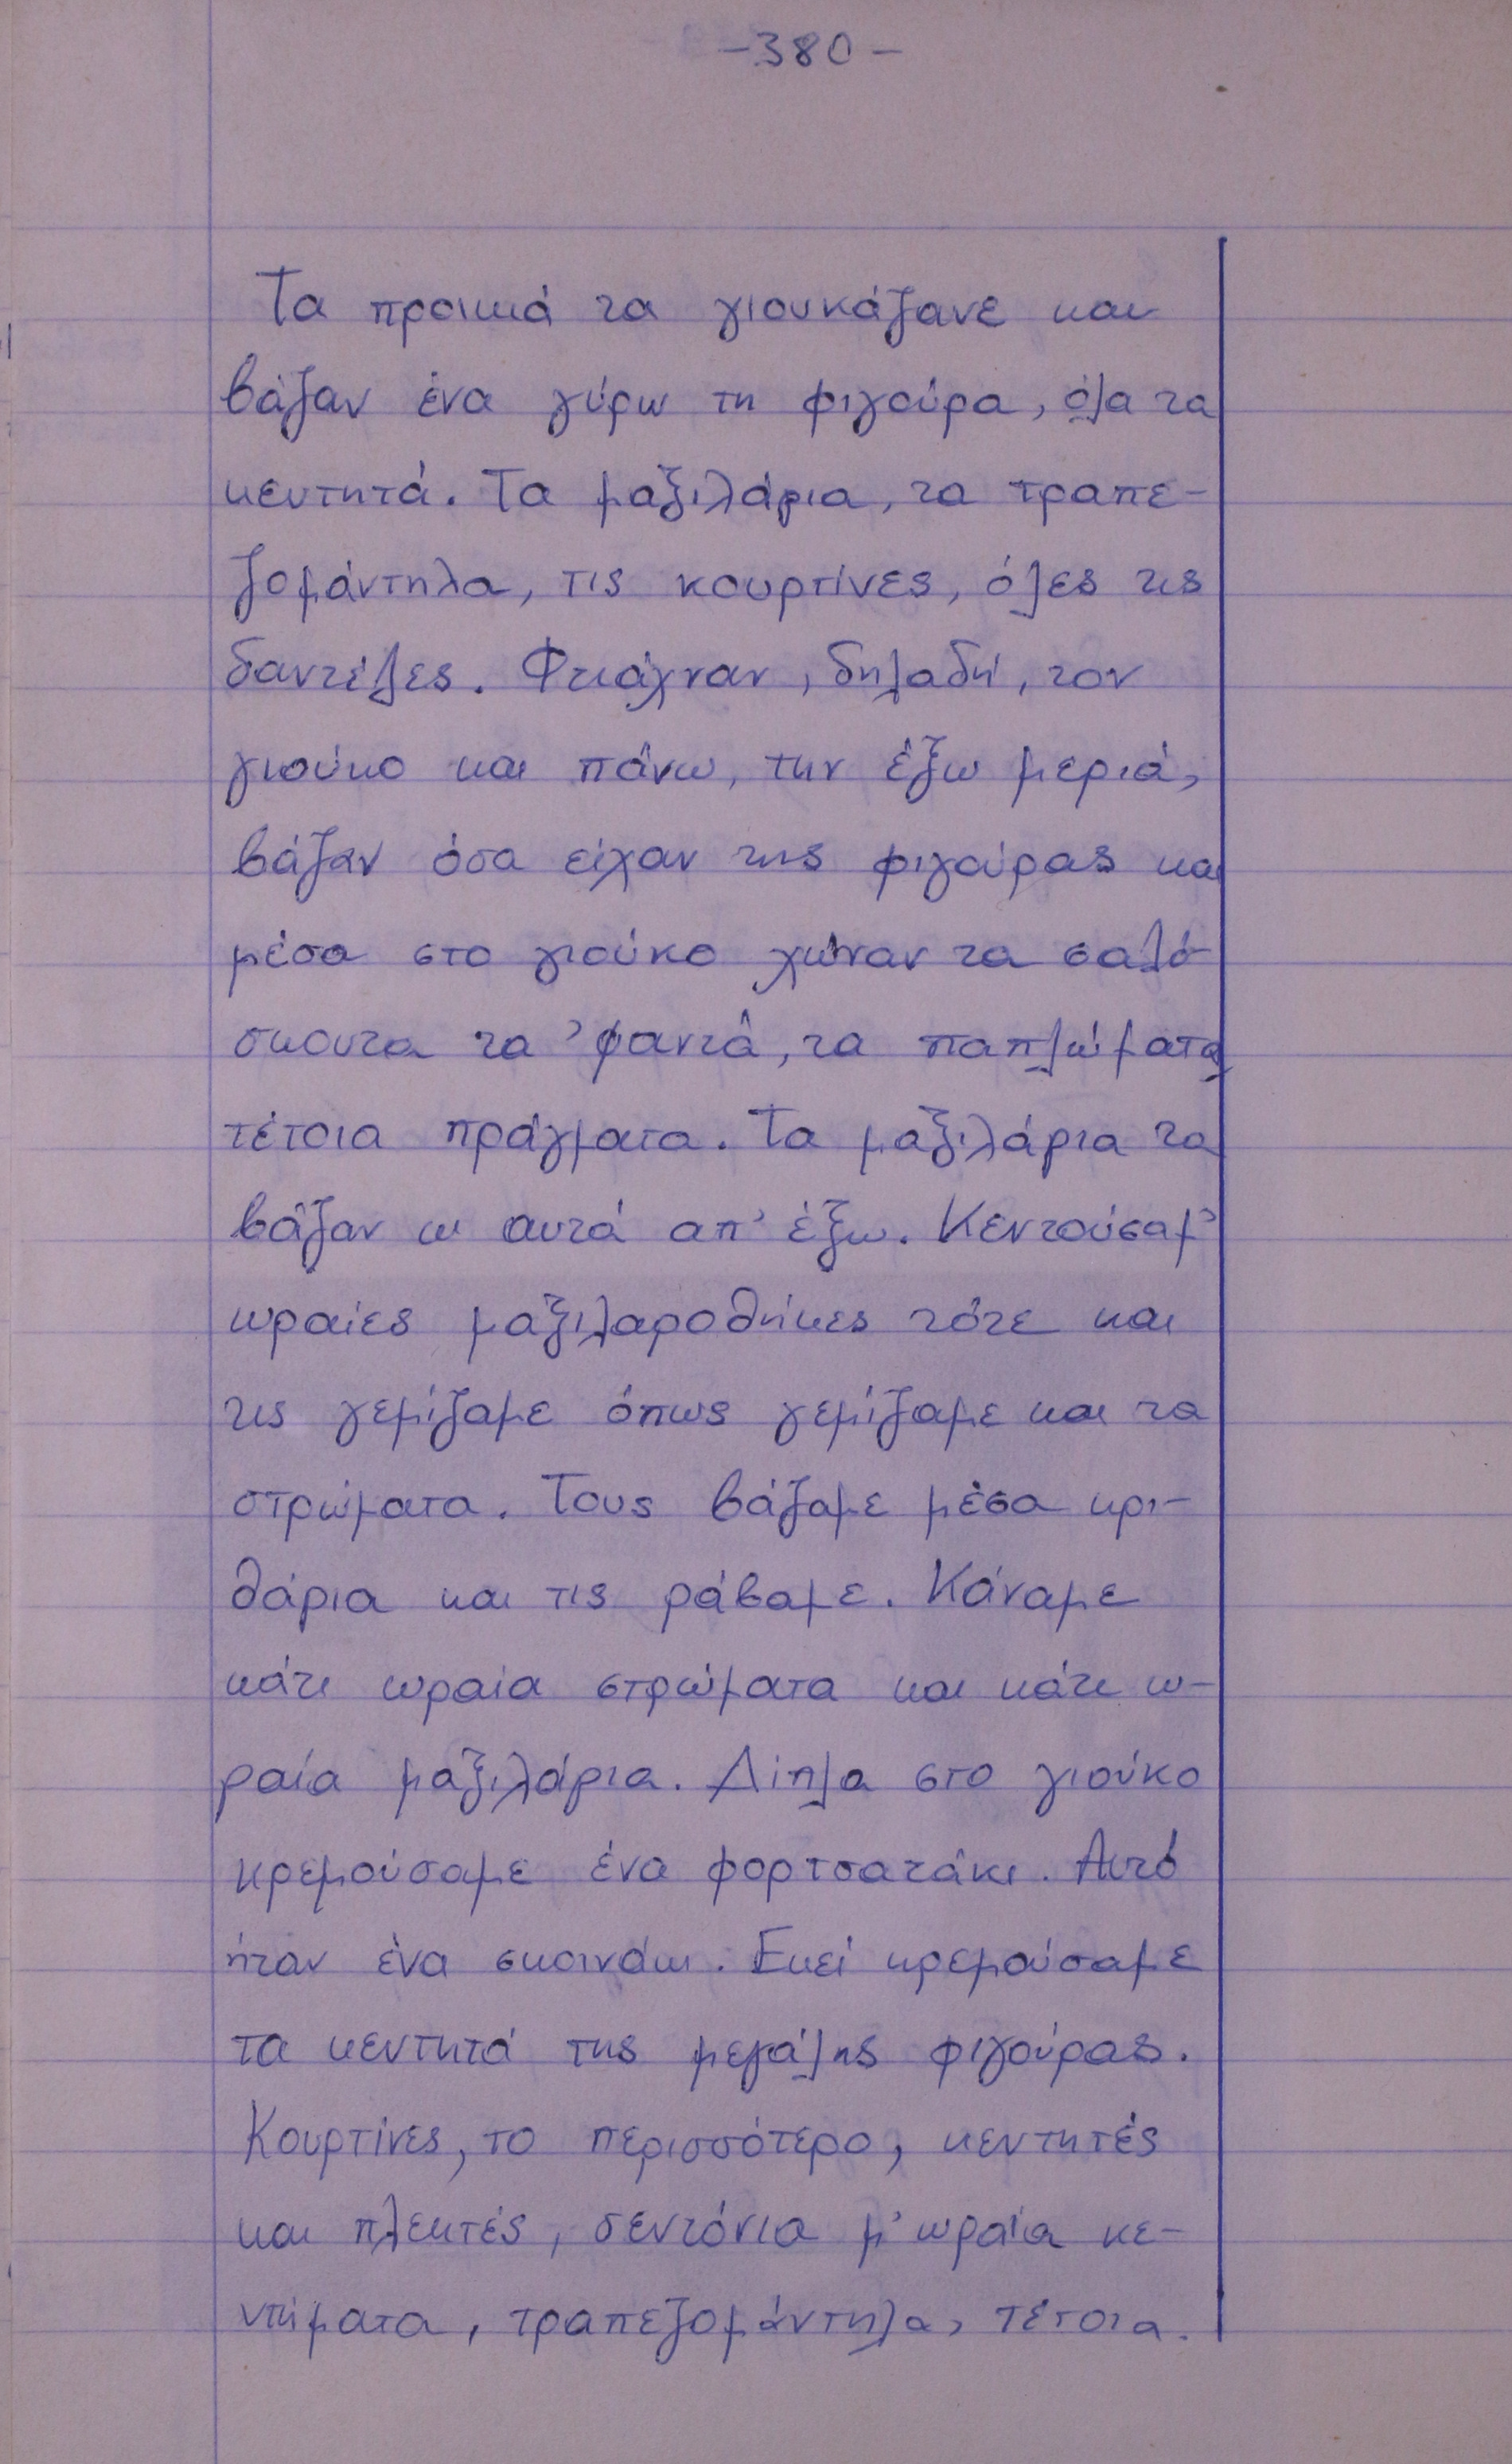 -380-
Τα προικιά τα γιουκάζανε και
βάζαν ένα γύρω τη φιγούρα, όλα τα
κεντητά. Τα μαξιλάρια, τα τραπε-
ζομάντηλα, τις κουρτίνες, όλες τις
δαντέλες. Φτιάχναν, δηλαδή, τον
γιούκο και πάνω, την έξω μεριά,
βάζαν όσα είχαν της φιγούρας και
μέσα στο γιούκο χώναν τα σαλό-
σκουτα τα 'φαντά, τα παπλώματα
τέτοια πράγματα. Τα μαξιλάρια τα
βάζαν κι αυτά απ' έξω. Κεντούσαμ'
ωραίες μαξιλαροθήκες τότε και
τις γεμίζαμε όπως γεμίζαμε και τα
στρώματα. Τους βάζαμε μέσα κρι-
θάρια και τις ράβαμε. Κάναμε
κάτι ωραία στρώματα και κάτι ω-
ραία μαξιλάρια. Δίπλα στο γιούκο
κρεμούσαμε ένα φορτσατάκι. Αυτό
ήταν ένα σκοινάκι. Εκεί κρεμούσαμε
τα κεντητά της μεγάλης φιγούρας.
Κουρτίνες, το περισσότερο, κεντητές
και πλεκτές, σεντόνια μ' ωραία κε-
ντήματα, τραπεζομάντηλα, τέτοια.